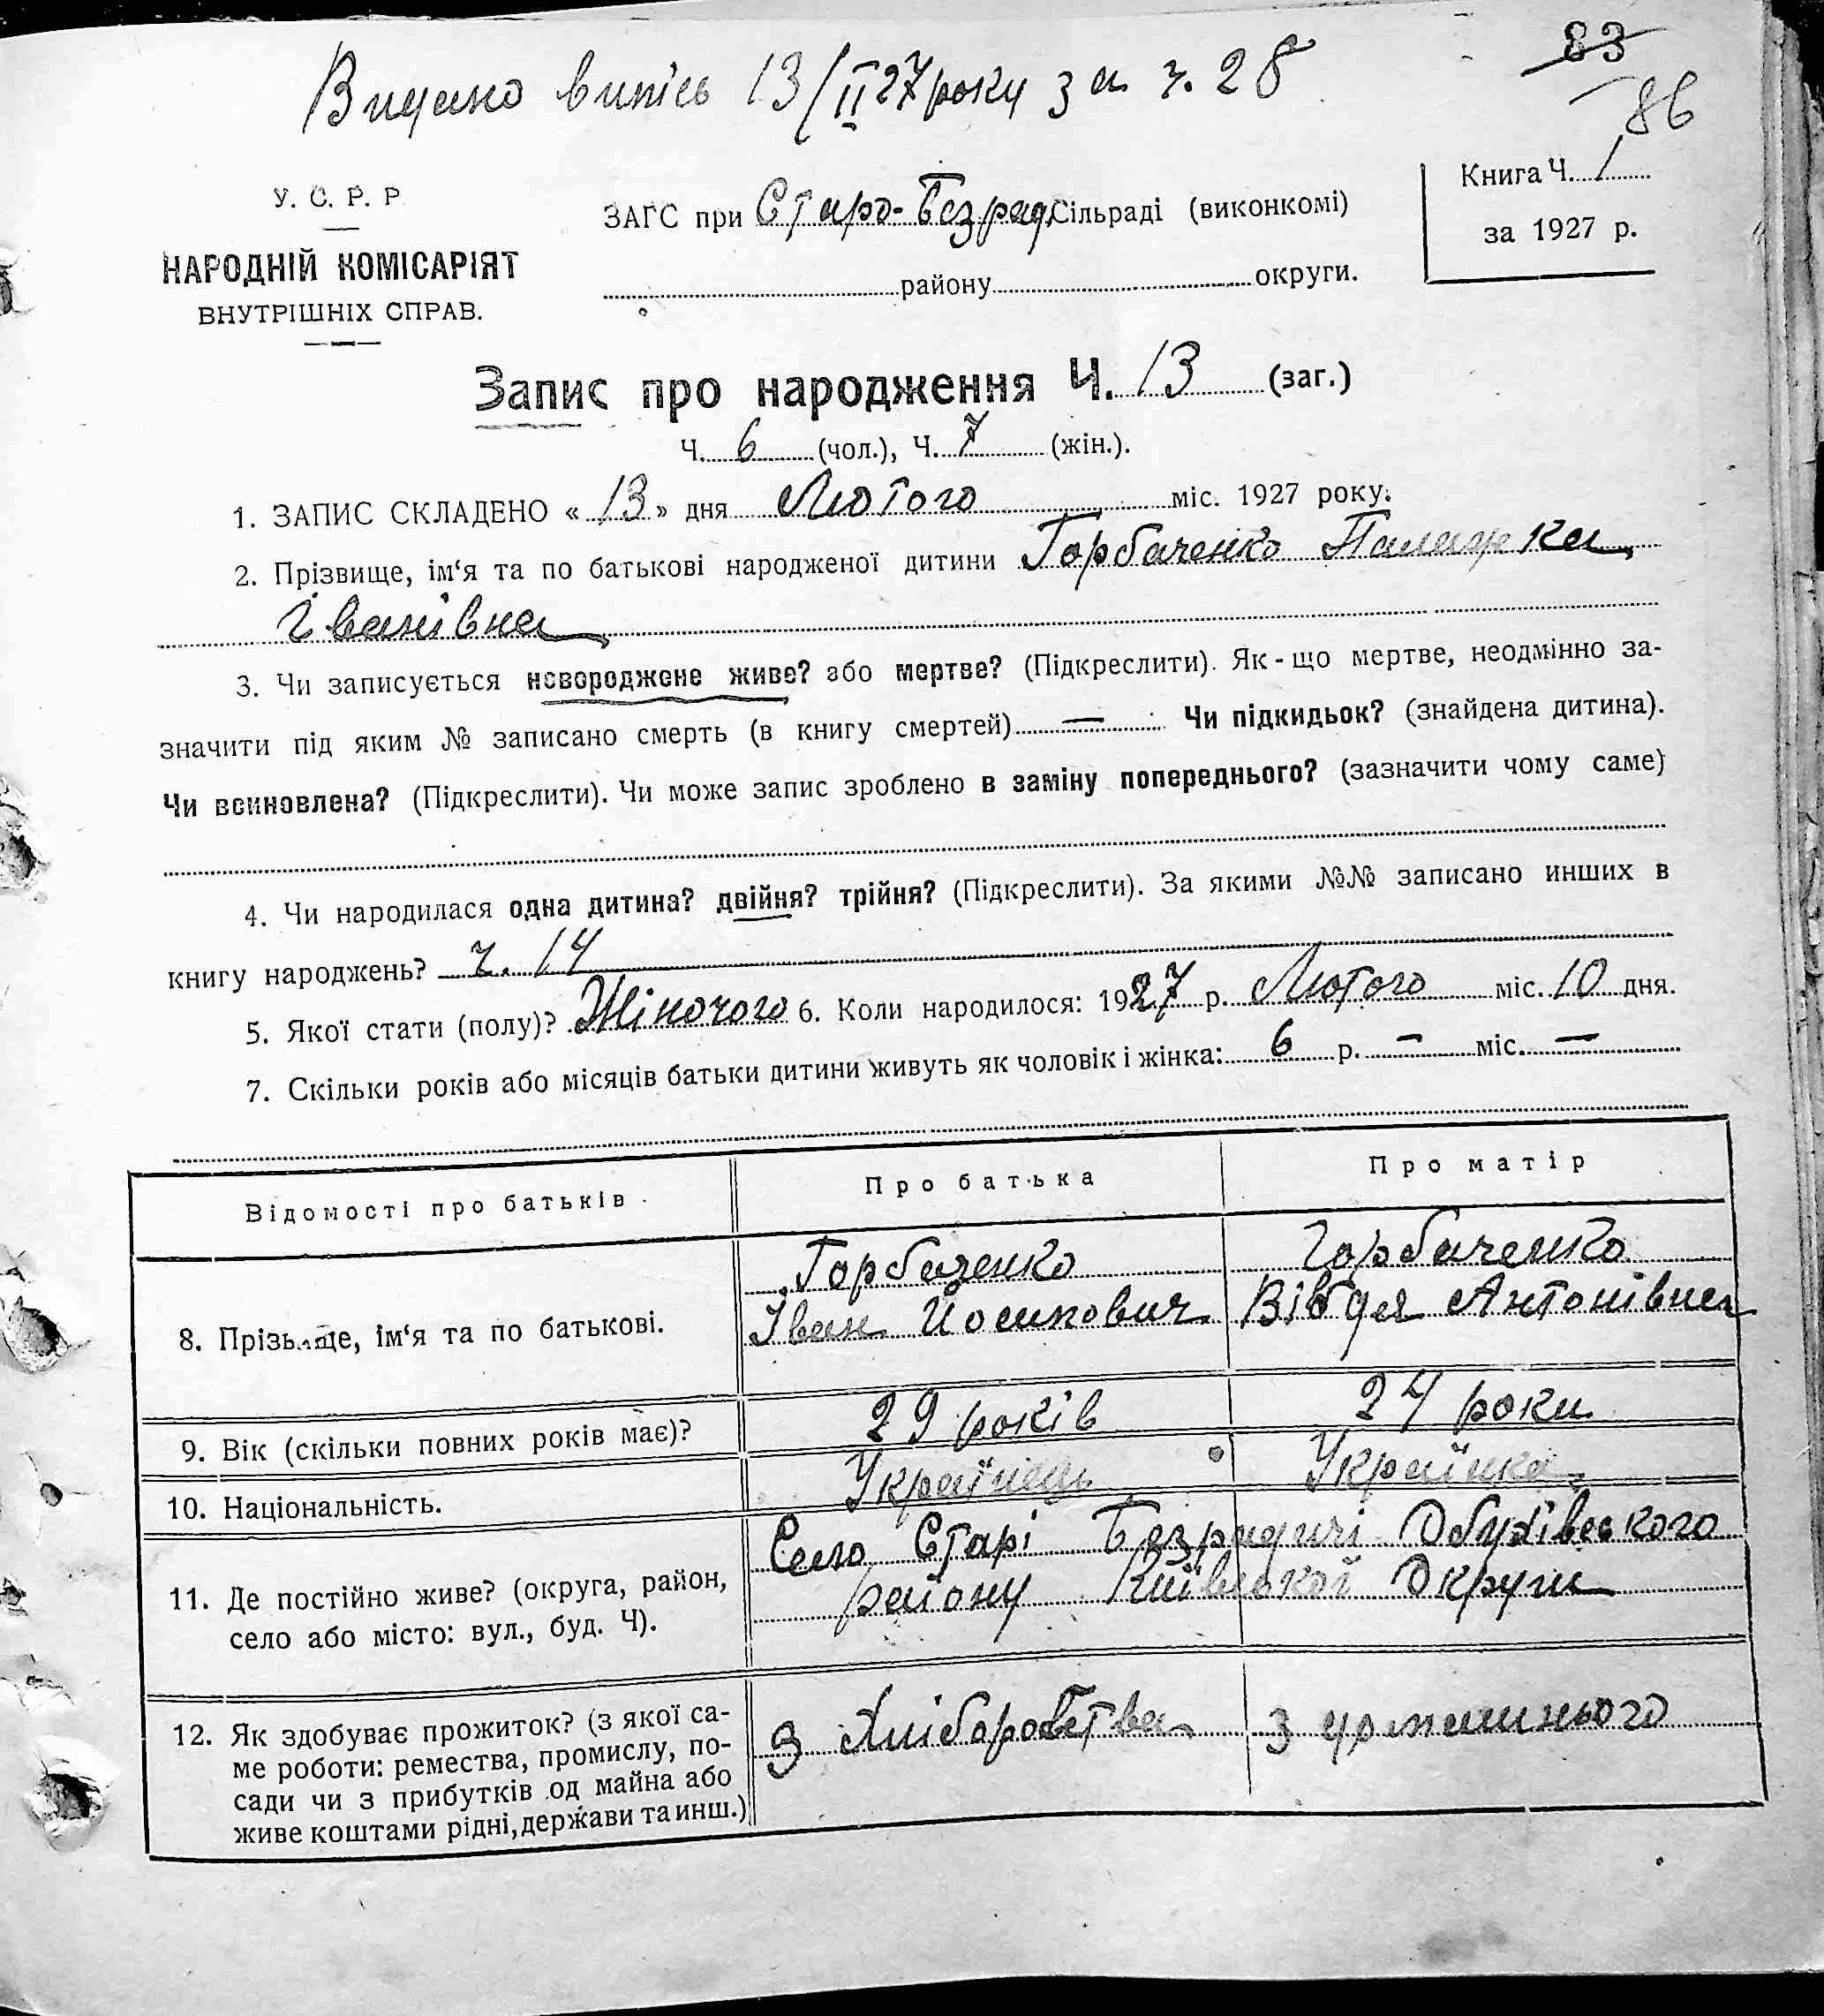 Видано випись 13/II 27 року за ч. 28
83
86
У. С. Р. Р.
НАРОДНІЙ КОМІСАРІЯТ
ВНУТРІШНІХ СПРАВ.
ЗАГС при Старо-Безрад. Сільраді (виконкомі)
району округи.
Книга Ч. 1
за 1927 р.
Запис про народження Ч. 13 (заг.)
Ч. 6 (чол.), Ч. 7 (жін.).
1. ЗАПИС СКЛАДЕНО «13» дня Лютого міс. 1927 року.
2. Прізвище, ім‘я та по батькові народженої дитини Горбаченко Палажка
Іванівна
3. Чи записується новороджене живе? або мертве? (Підкреслити). Як-що мертве, неодмінно за-
значити під яким № записано смерть (в книгу смертей) — Чи підкидьок? (знайдена дитина).
Чи всиновлена? (Підкреслити). Чи може запис зроблено в заміну попереднього? (зазначити чому саме)
4. Чи народилася одна дитина? двійня? трійня? (Підкреслити). За якими №№ записано инших в
книгу народжень? ч. 14
5. Якої стати (полу)? Жіночого 6. Коли народилося: 1927 р. Лютого міс. 10 дня.
7. Скільки років або місяців батьки дитини живуть як чоловік і жінка: 6 р. — міс. —
Відомості про батьків. Про батька Про матір
8. Прізвище, ім‘я та по батькові.
Горбаченко
Іван Йосипович
Горбаченко
Вівдя Антонівна
9. Вік (скільки повних років має)? 29 років 24 роки
10. Національність. Українець Українка
11. Де постійно живе? (округа, район,
село або місто: вул., буд. Ч).
Село Старі Безрадичі Обухівського
району Київської Округи
12. Як здобуває прожиток? (з якої са-
ме роботи: ремества, промислу, по-
сади чи з прибутків од майна або
живе коштами рідні, держави та инш.)
З Хліборобства
З домашнього